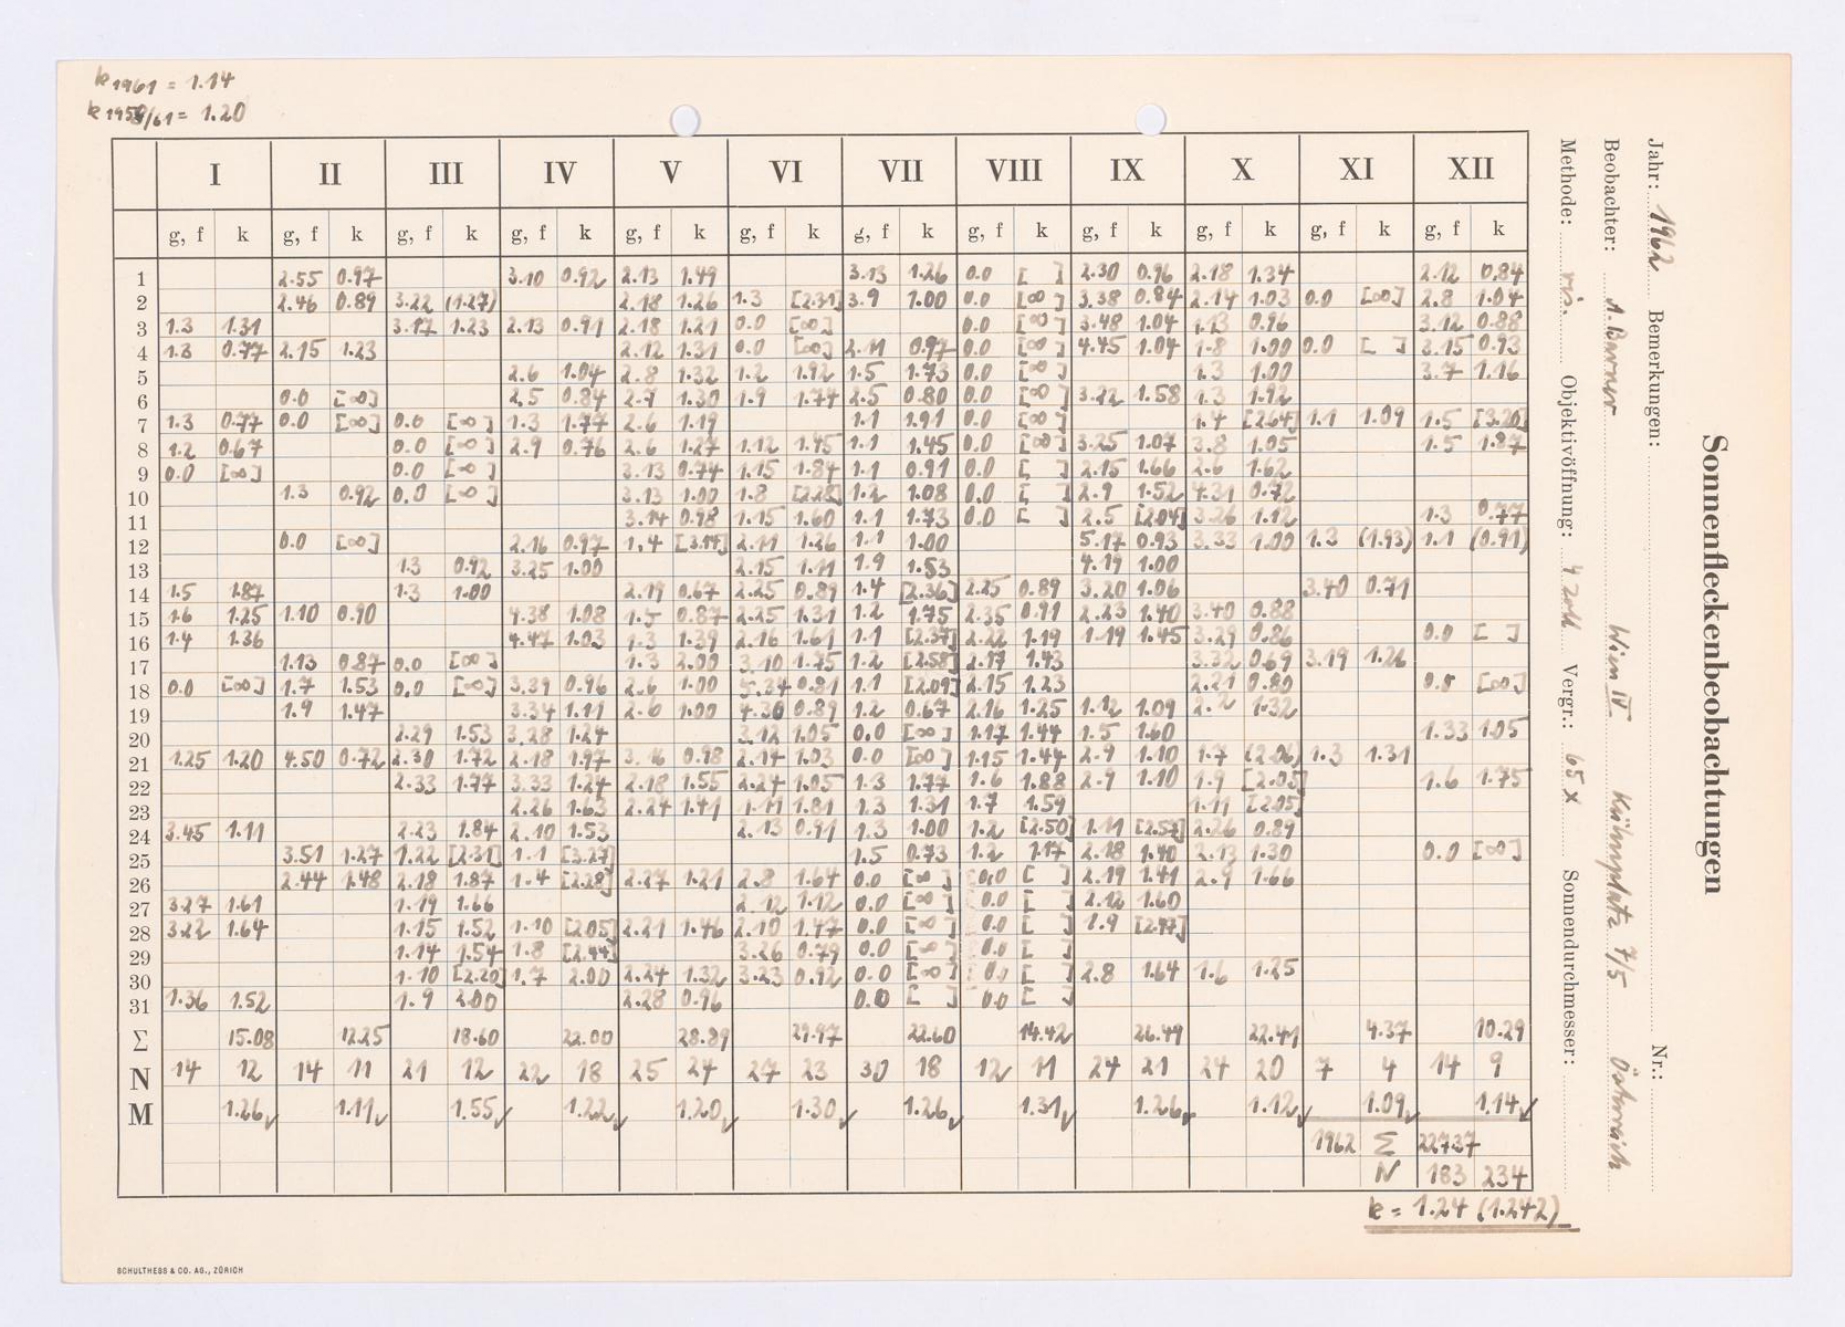 k 1961 = 1.14
k 1959/61 = 1.20
I II III IV V VI VII VIII IX X XI XII
g, f k g, f k g, f k g, f k g, f k g, f k g, f k g, f k g, f k g, f k g, f k g, f k
1 2.55 0.97 3.10 0.92 2.13 1.49 3.13 1.26 0.0 [ ] 2.30 0.96 2.18 1.34 2.12 0.84
2 2.46 0.89 3.22 (1.27) 2.18 1.26 1.3 [2.31] 3.9 1.00 0.0 [∞] 3.38 0.84 2.14 1.03 0.0 [∞] 2.8 1.04
3 1.3 1.31 3.17 1.23 2.13 0.91 2.18 1.21 0.0 [∞] 0.0 [∞] 3.48 1.04 1.13 0.96 3.12 0.88
4 1.3 0.77 2.15 1.23 2.12 1.31 0.0 [∞] 2.11 0.97 0.0 [∞] 4.45 1.04 1.8 1.00 0.0 [ ] 3.15 0.93
5 2.6 1.04 2.8 1.32 1.2 1.92 1.5 1.73 0.0 [∞] 1.3 1.00 3.7 1.16
6 0.0 [∞] 2.5 0.84 2.7 1.30 1.9 1.74 2.5 0.80 0.0 [∞] 3.22 1.58 1.3 1.92
7 1.3 0.77 0.0 [∞] 0.0 [∞] 1.3 1.77 2.6 1.19 1.1 1.91 0.0 [∞] 1.4 [2.64] 1.1 1.09 1.5 [3.20]
8 1.2 0.67 0.0 [∞] 2.9 0.76 2.6 1.27 1.12 1.45 1.1 1.45 0.0 [∞] 3.25 1.07 3.8 1.05 1.5 1.87
9 0.0 [∞] 0.0 [∞] 3.13 0.74 1.15 1.84 1.1 0.91 0.0 [ ] 2.15 1.66 2.6 1.62
10 1.3 0.92 0.0 [∞] 3.13 1.00 1.8 [2.28] 1.2 1.08 0.0 [ ] 2.9 1.52 4.31 0.72
11 3.14 0.98 1.15 1.60 1.1 1.73 0.0 [ ] 2.5 [2.04] 3.26 1.12 1.3 0.77
12 0.0 [∞] 2.16 0.97 1.4 [3.14] 2.11 1.26 1.1 1.00 5.17 0.93 3.33 1.00 1.3 (1.93) 1.1 (0.91)
13 1.3 0.92 3.25 1.00 2.15 1.11 1.9 1.53 4.19 1.00
14 1.5 1.87 1.3 1.00 2.19 0.67 2.25 0.89 1.4 [2.36] 2.25 0.89 3.20 1.06 3.40 0.71
15 1.6 1.25 1.10 0.90 4.38 1.08 1.5 0.87 2.25 1.31 1.2 1.75 2.35 0.91 2.23 1.40 3.40 0.88
16 1.4 1.36 4.47 1.03 1.3 1.39 2.16 1.61 1.1 [2.37] 2.22 1.19 1.19 1.45 3.29 0.86 0.0 [ ]
17 1.13 0.87 0.0 [∞] 1.3 2.00 3.10 1.75 1.2 [2.58] 2.17 1.43 3.32 0.69 3.19 1.26
18 0.0 [∞] 1.7 1.53 0.0 [∞] 3.39 0.96 2.6 1.00 5.34 0.81 1.1 [2.09] 2.15 1.23 2.21 0.80 0.0 [∞]
19 1.9 1.47 3.34 1.11 2.6 1.00 4.30 0.89 1.2 0.67 2.16 1.25 1.12 1.09 2.2 1.32
20 2.29 1.53 3.28 1.24 3.12 1.05 0.0 [∞] 1.17 1.44 1.5 1.60 1.33 1.05
21 1.25 1.20 4.50 0.72 2.30 1.72 2.18 1.97 3.16 0.98 2.14 1.03 0.0 [∞] 1.15 1.44 2.9 1.10 1.7 (2.06) 1.3 1.31
22 2.33 1.77 3.33 1.24 2.18 1.55 2.24 1.05 1.3 1.77 1.6 1.88 2.9 1.10 1.9 [2.05] 1.6 1.75
23 2.26 1.63 2.24 1.41 1.11 1.81 1.3 1.31 1.7 1.59 1.11 [2.05]
24 3.45 1.11 2.23 1.84 2.10 1.53 2.13 0.91 1.3 1.00 1.2 [2.50] 1.11 [2.57] 2.26 0.89
25 3.51 1.27 1.22 [2.31] 1.1 [3.27] 1.5 0.73 1.2 1.17 2.18 1.40 2.13 1.30 0.0 [∞]
26 2.44 1.48 2.18 1.87 1.4 [2.28] 2.27 1.21 2.8 1.64 0.0 [∞] 0.0 [ ] 2.19 1.41 2.9 1.66
27 3.27 1.61 1.19 1.66 2.12 1.12 0.0 [∞] 0.0 [ ] 2.12 1.60
28 3.22 1.64 1.15 1.52 1.10 [2.05] 2.21 1.46 2.10 1.47 0.0 [∞] 0.0 [ ] 1.9 [2.47]
29 1.14 1.54 1.8 [2.44] 3.26 0.79 0.0 [∞] 0.0 [ ]
30 1.10 [2.20] 1.7 2.00 2.24 1.32 3.23 0.92 0.0 [∞] 0.0 [ ] 2.8 1.64 1.6 1.25
31 1.36 1.52 1.9 2.00 2.28 0.96 0.0 [ ] 0.0 [ ]
Σ 15.08 12.25 18.60 22.00 28.89 29.97 22.60 14.42 26.49 22.41 4.37 10.29
N 14 12 14 11 21 12 22 18 25 24 27 23 30 18 12 11 24 21 24 20 7 4 14 9
M 1.26✓ 1.11✓ 1.55✓ 1.22✓ 1.20✓ 1.30✓ 1.26✓ 1.31✓ 1.26✓ 1.12✓ 1.09✓ 1.14✓
1962 Σ 227.37
N 183 234
k = 1.24 (1.242)
SCHULTHESS & CO. AG., ZÜRICH
Sonnenfleckenbeobachtungen
Jahr: 1962 Bemerkungen: Nr.:
Beobachter: Wien IV. 7/5 Österreich
Methode: vis. Objektivöffnung: 4 Zoll Vergr.: 65 x Sonnendurchmesser: